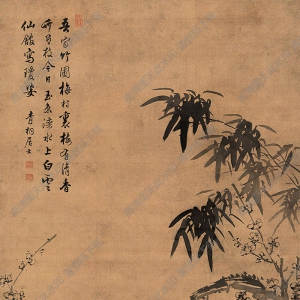 吾家竹梅村裏梅有清香
竹有枝今日玉水上白雲
仙館寫瓊姿
青桐居士